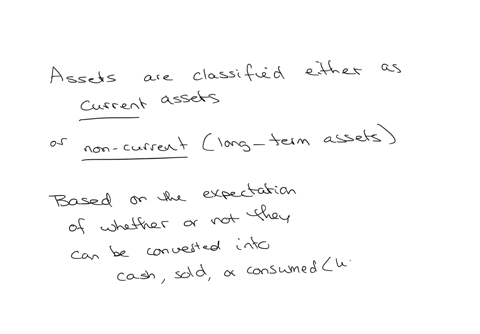 Assets are classified either as
current assets
or non-current (long-term assets)
Based on the expectation
of whether or not they
can be converted into
cash, sold, or consumed (